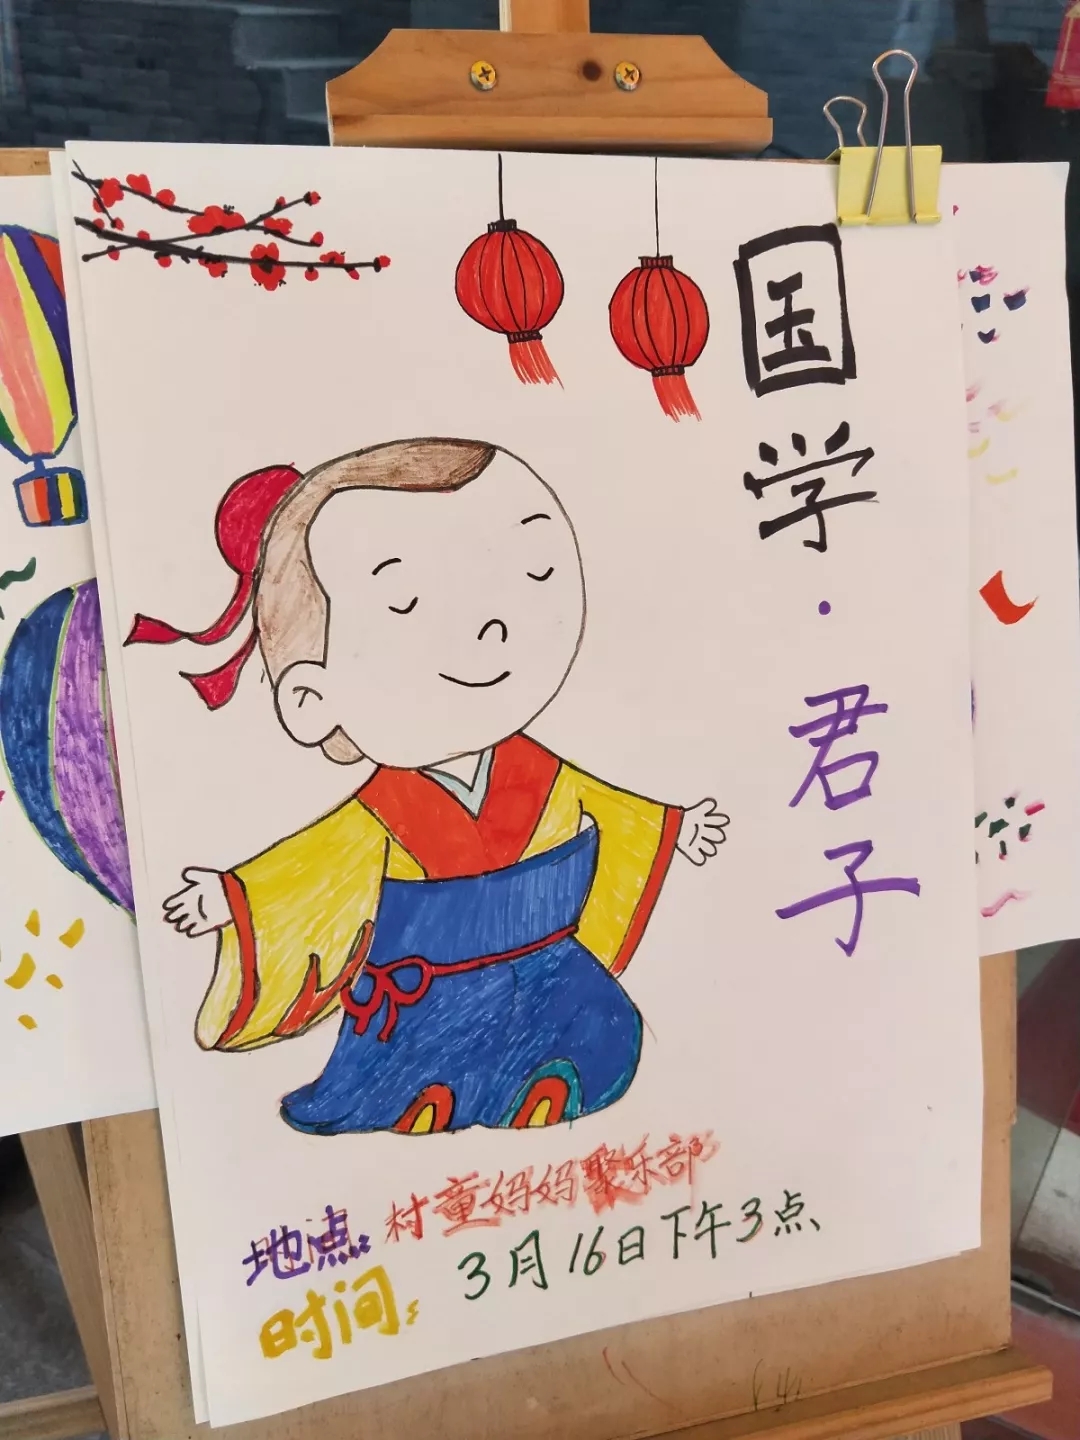 国学·君子
地点:村童妈妈聚乐部
时间:3月16日下午3点